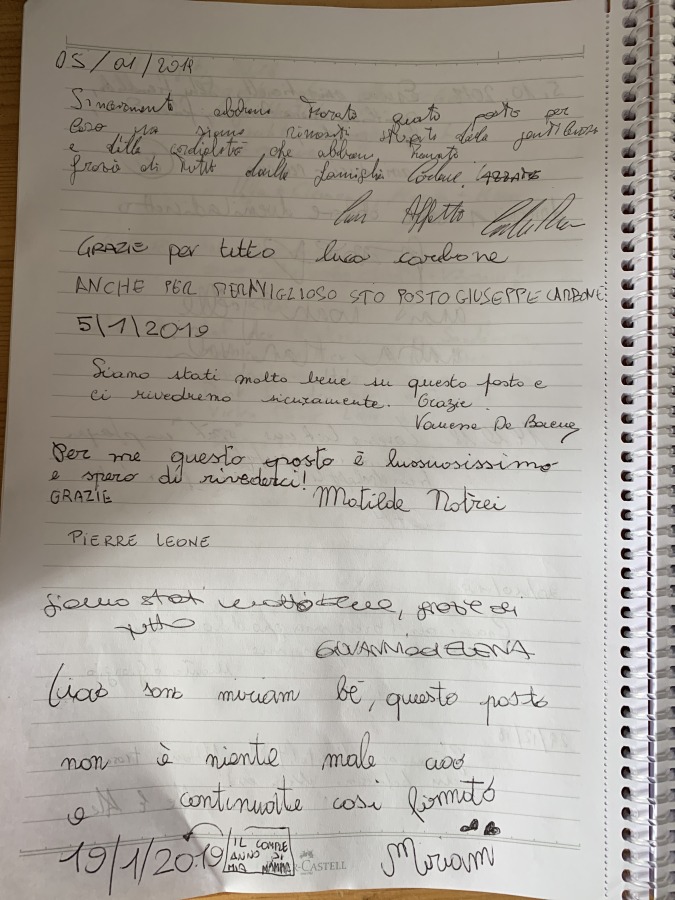 05/01/2019
Sinceramente abbiamo trovato questo posto per
caso ma siamo rimasti dalla gentilezza
e della cordialità che abbiamo trovato.
grazie di tutto dalla famiglia
Con Affetto
GRAZIE per tutto luca carbone
ANCHE PER MERAVIGLIOSO STO POSTO GIUSEPPE CARBONE
5/1/2019
Siamo stati molto bene su questo posto e
ci rivedremo sicuramente. Grazie.
Vanessa De
Per me questo posto è lussuosissimo
e spero di rivederci!
GRAZIE Matilde Notrei
PIERRE LEONE
Siamo stati molto bene, grazie di
tutto
GIOVANNI ed ELENA
Ciao sono miriam bè, questo posto
non è niente male ciao
e continuate cosi firmato
19/1/2019 IL COMPLE
ANNO DI
MIA MAMMA
Miriam
R-CASTELL